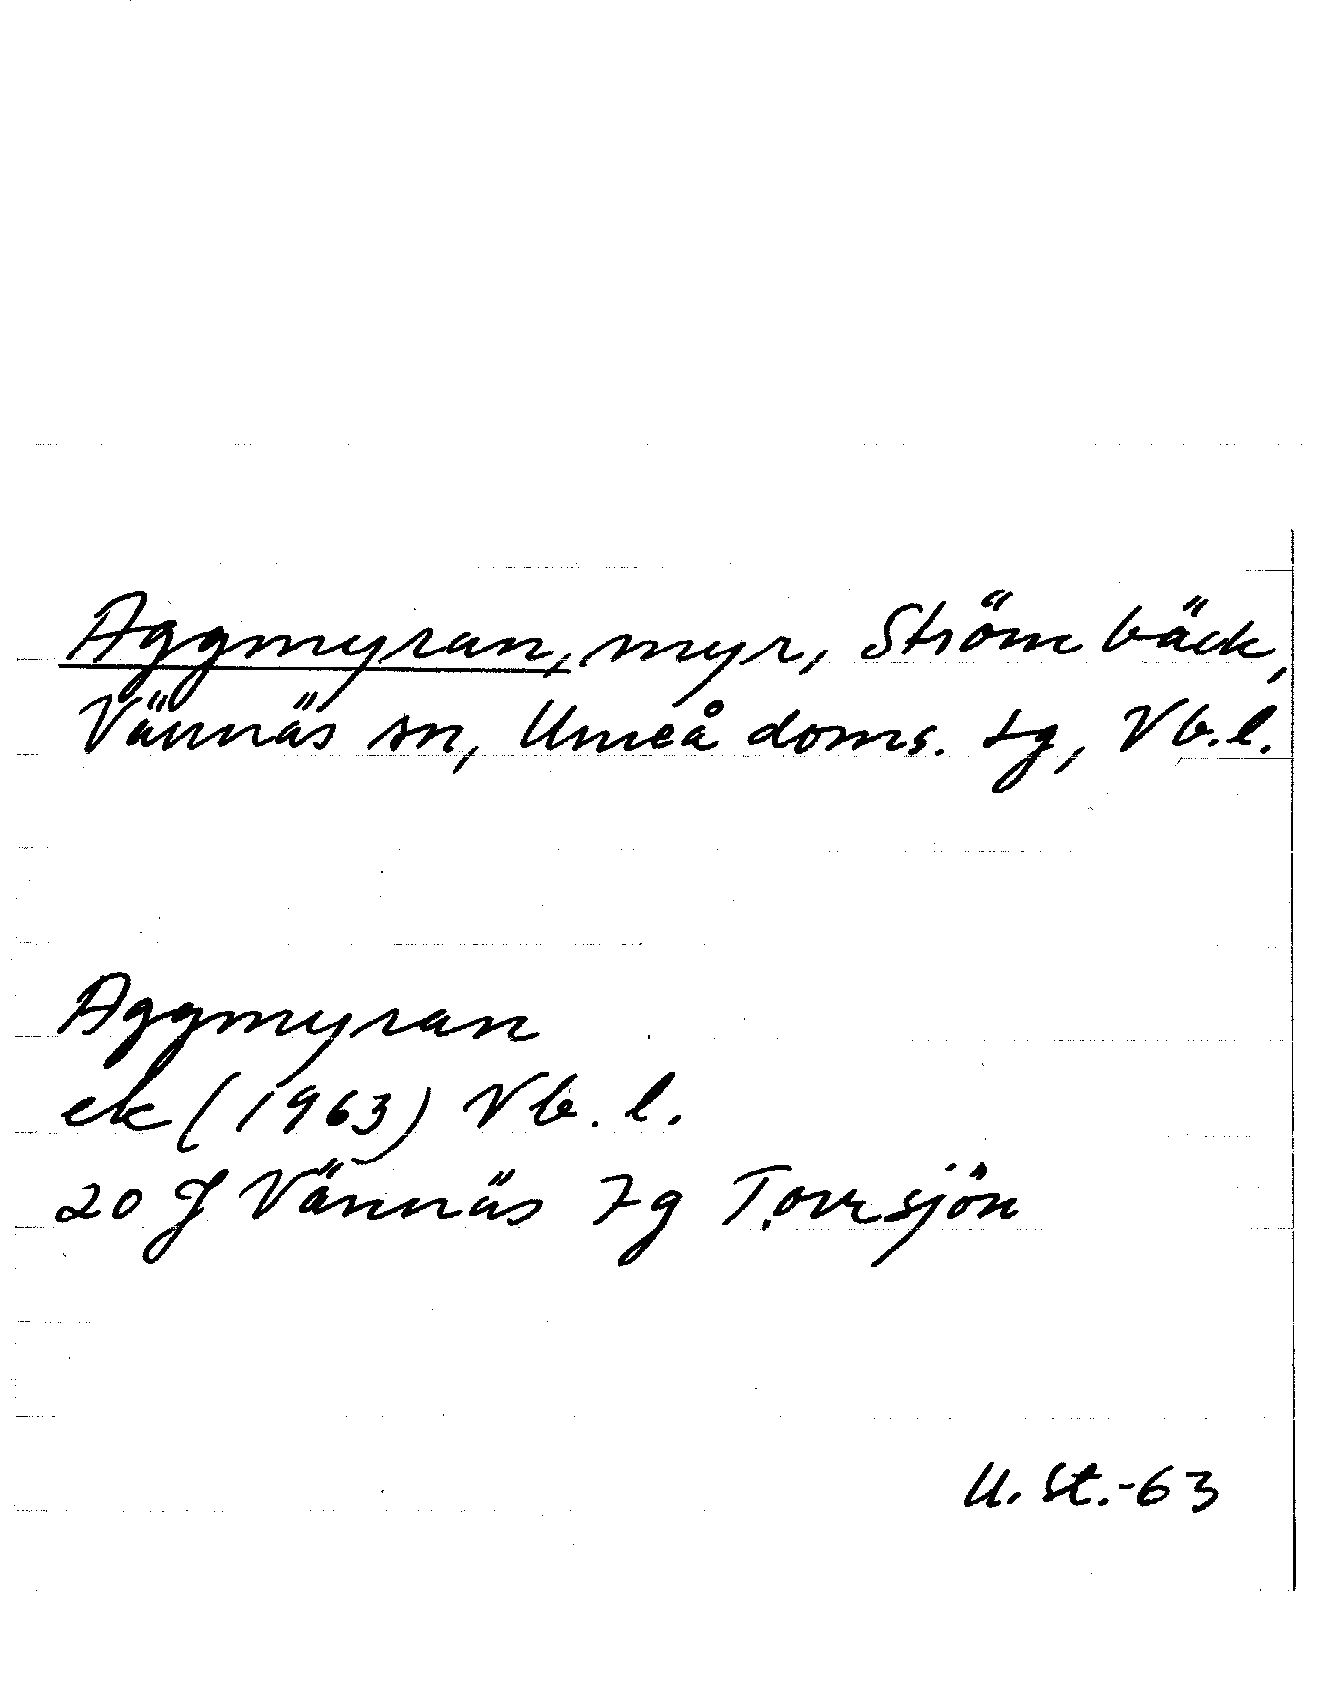 Aggmyran, myr, Strömbäck,
Vännäs sn, Umeå doms. tg, Vb.l.
Aggmyran
ek (1963) Vb. l.
20 J Vännäs 7g Torrsjön
U. St.-63